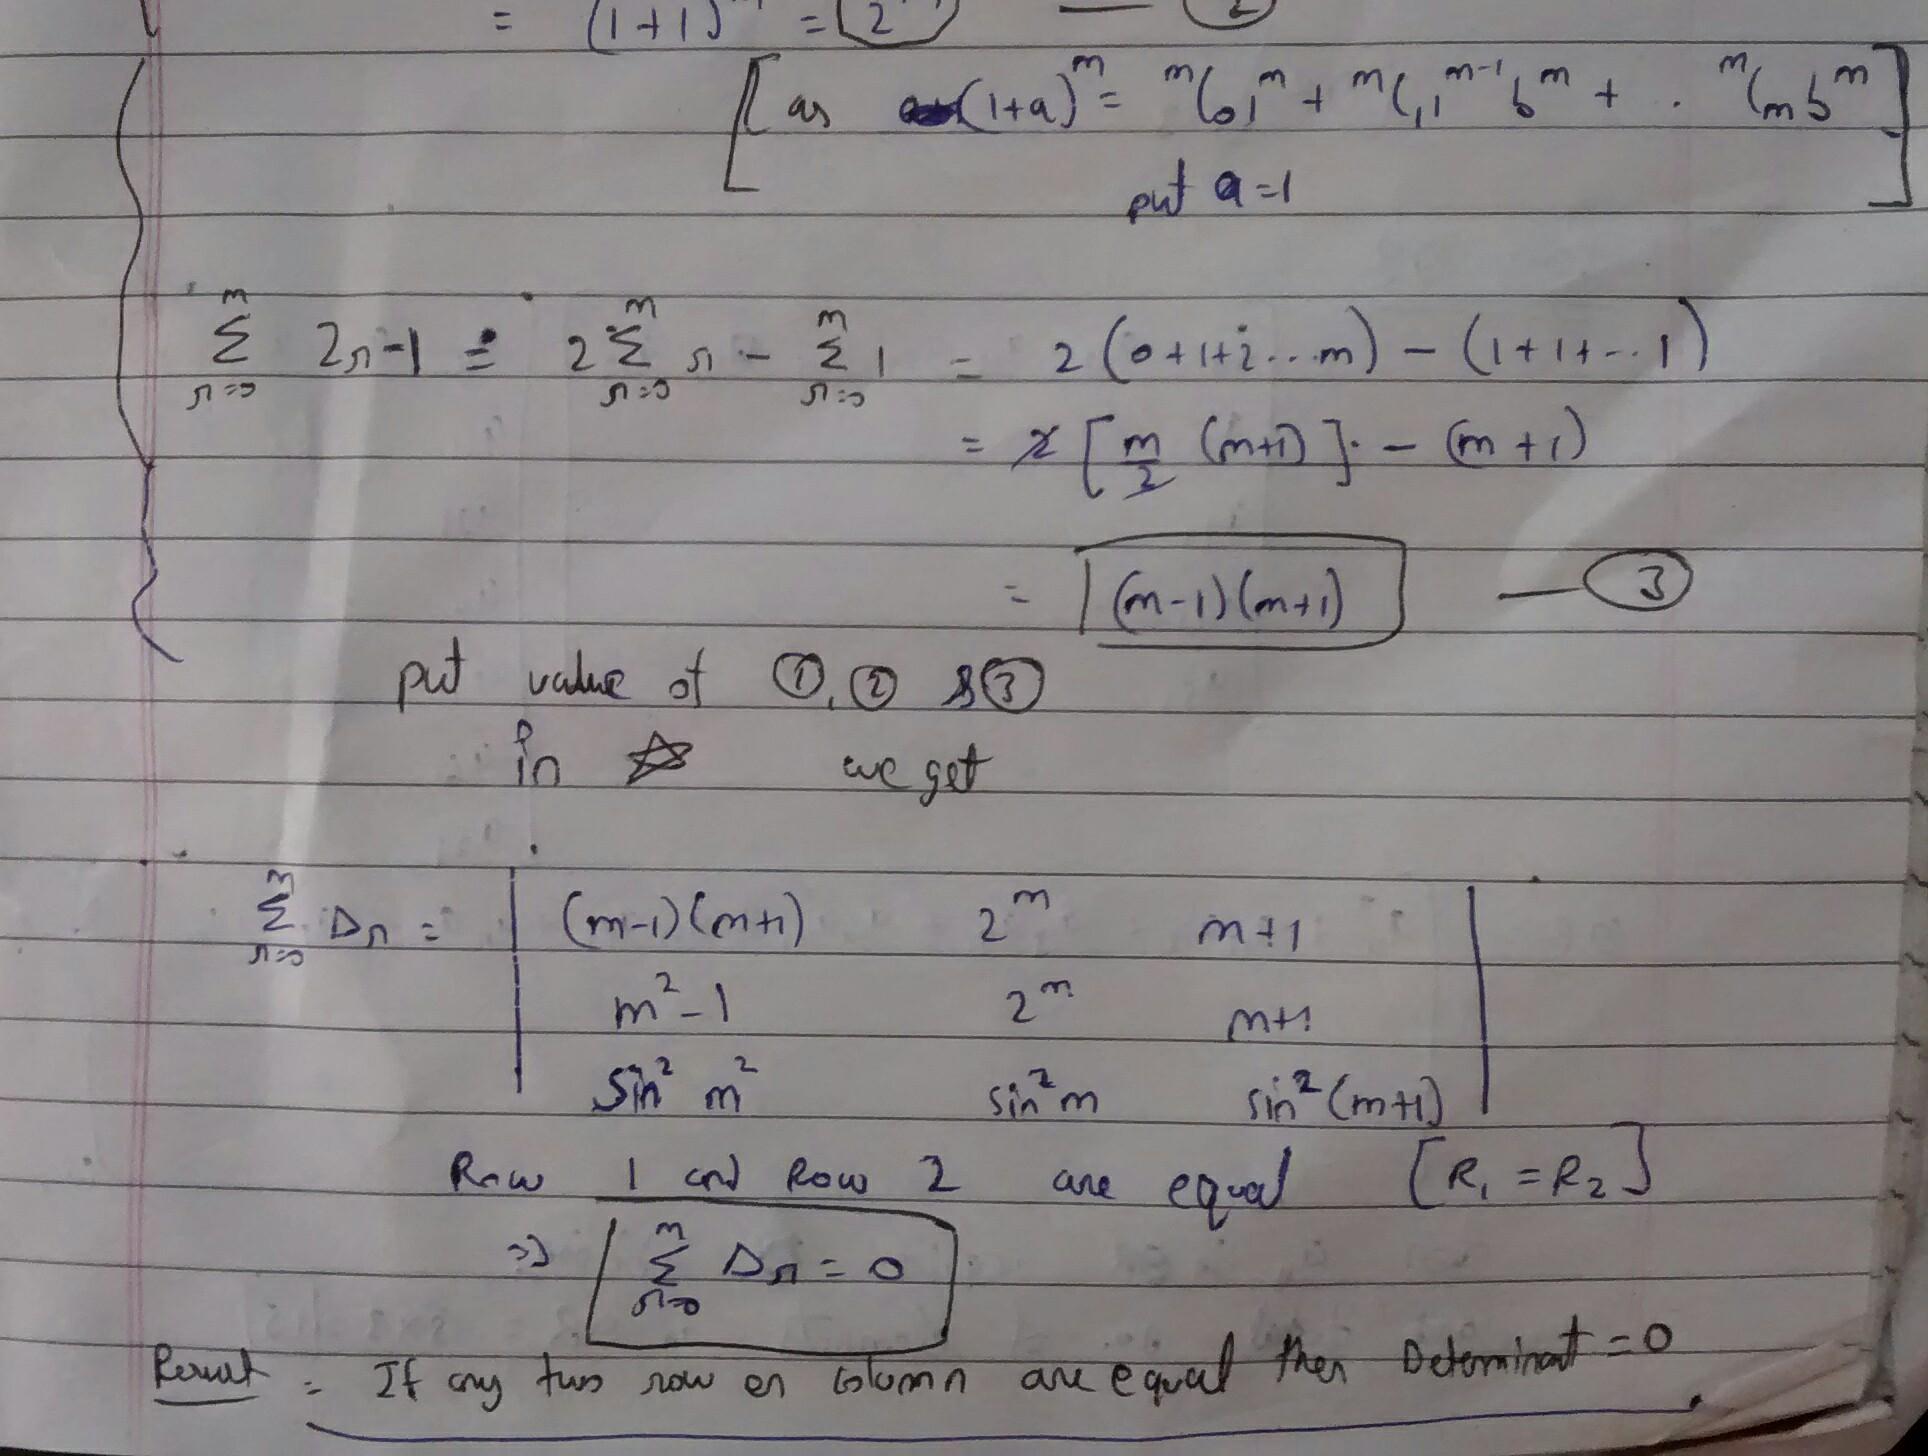 = (1+1)^m = 2^m — ②
[as (1+a)^m = ^mC_0 1^m + ^mC_1 1^{m-1} b^m + . ^mC_m b^m]
put a=1
\sum_{r=0}^{m} 2r-1 = 2 \sum_{r=0}^{m} r - \sum_{r=0}^{m} 1 = 2(0+1+2...m) - (1+1+...1)
= 2 [m/2 (m+1)] - (m+1)
= (m-1)(m+1) — ③
put value of ①, ② & ③
in ☆ we get
\sum_{r=0}^{m} Δr = | (m-1)(m+1) 2^m m+1 |
m²-1 2^m m+1
sin² m² sin² m sin² (m+1)
Row 1 and Row 2 are equal [R₁ = R₂]
=> \sum_{r=0}^{m} Δr = 0
Result = If any two row or column are equal then Determinant = 0